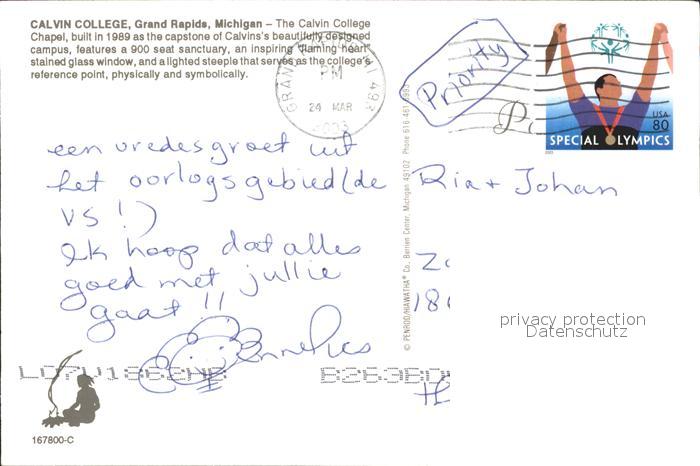 CALVIN COLLEGE, Grand Rapids, Michigan – The Calvin College
Chapel, built in 1989 as the capstone of Calvins's beautifully designed
campus, features a 900 seat sanctuary, an inspiring "flaming heart"
stained glass window, and a lighted steeple that serves as the college's
reference point, physically and symbolically.
GRAND RAPIDS MI 49
PM
24 MAR
2003
Priority
USA
80
SPECIAL OLYMPICS
2003
een vredesgroet uit
het oorlogsgebied (de
VS!)
Ik hoop dat alles
goed met jullie
gaat!!
Ria + Johan
© PENROD/HIAWATHA® Co., Berrien Center, Michigan 49102 Phone 616-461-6993
privacy protection
Datenschutz
167800-C